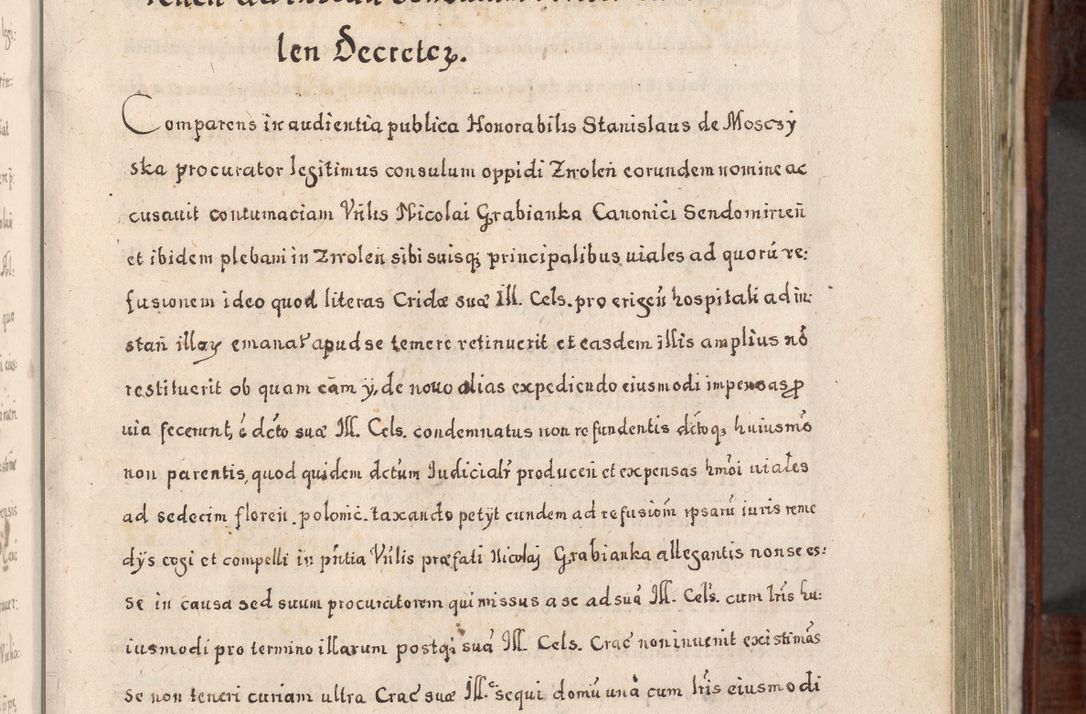 len Decretez.
Comparens in audientia publica Honorabilis Stanislaus de Mosczy
ska procurator legitimus consulum oppidi Zwolen̄ eorundem nomine ac
cusavit contumaciam Vnlis Nicolai Grabianka Canonici Sendomirien̄
et ibidem plebani in Zwolen̄ sibi suisq; principalibus viales ad quorū re:
fusionem ideo quod literas Cridæ suæ Ill. Cels. pro erigen̄ hospitali ad in:
stan̄ illoꝝ emanat apud se temere retinuerit et easdem illis amplius nō
restituerit ob quam cām ÿ, de novo alias expediendo eiusmodi impensas ꝓ
uia fecerunt, é dcto suæ Ill. Cels. condemnatus non refundentis dcto q; huiusmō
non parentis, quod quidem dctum Iudicialr producen̄ et expensas hmōi uiales
ad sedecim floren. polonic. taxando petÿt eundem ad refusiom̄ ipsarū iuris reme
dÿs cogi et compelli in pn̄tia Vnlis præfati Nicolaj Grabianka allegantis non se es:
se in causa sed suum procuratorem qui missus a se ad suā Ill. Cels. cum lr̄is hu:
iusmodi pro termino illarum postq; suā Ill. Cels. Crac non invenit existimās
se non teneri curiam ultra Crac suæ Ill.ᶜ sequi domū unā cum lr̄is eiusmodi